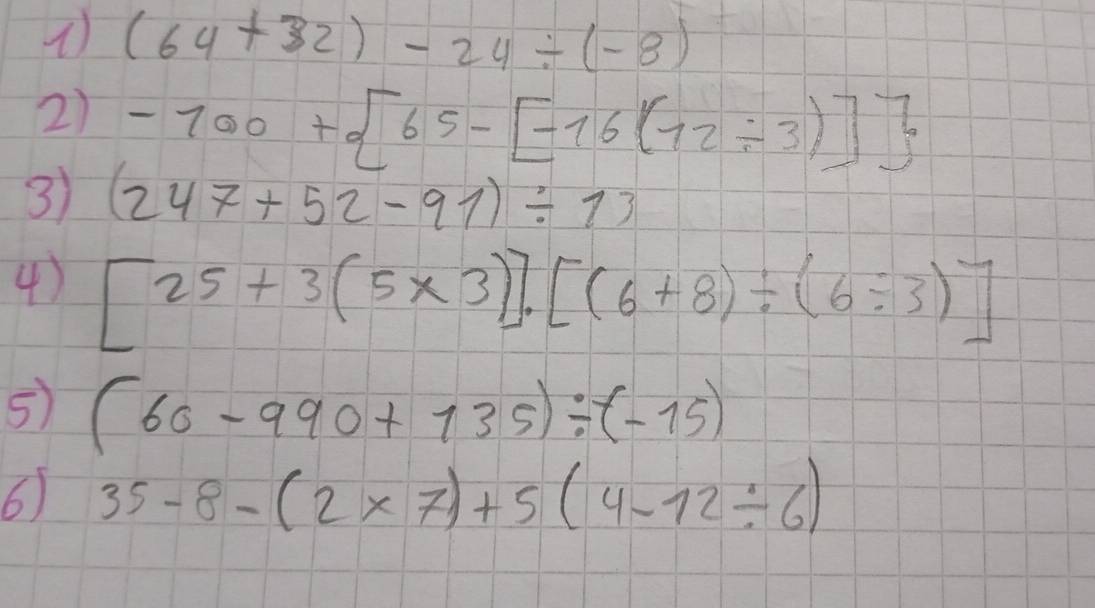 1) (64+32) - 24 ÷ (-8)
2) -100 + {65 - [-16(12÷3)]}
3) (247+52-91) ÷ 13
4) [25 + 3(5×3)].[(6+8) ÷ (6÷3)]
5) (60-990+135) ÷ (-15)
6) 35-8-(2×7)+5(4-12÷6)